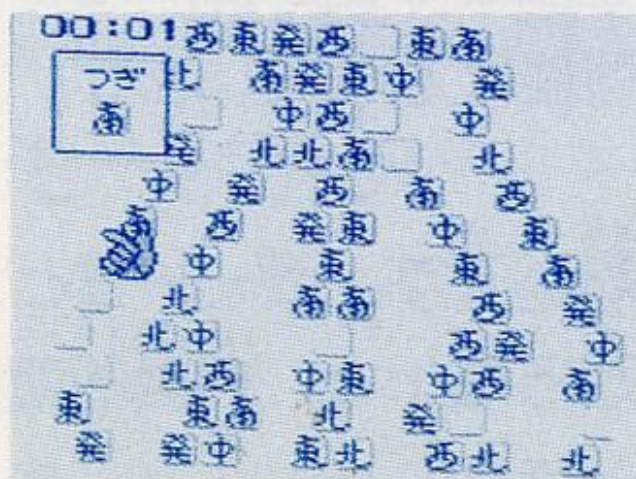 00:01 西 東 発 西 東 南
つぎ 北 南 発 東 中 発
南 中 西 中
発 北 北 南 北
中 発 西 南 西
西 発 東 中 東
中 東 東 南
北 南 南 西 発
北 中 西 発 中
北 西 中 東 中 西 南
東 東 南 北 発
発 発 中 東 北 西 北 北